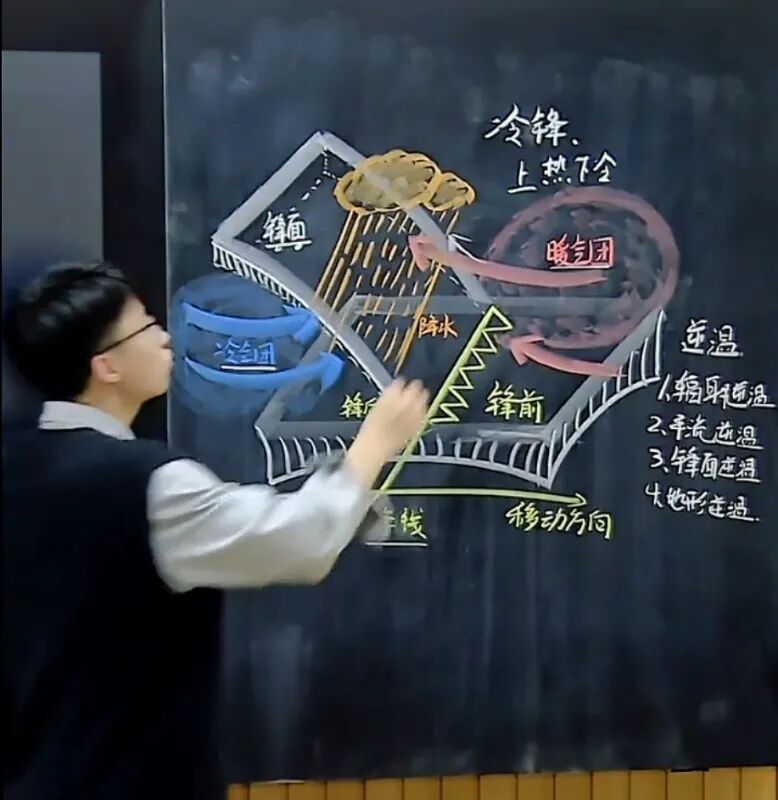 冷锋、
上热下冷
锋面
暖气团
冷气团
降水
锋前
移动方向
逆温
1.辐射逆温
2.平流逆温
3.锋面逆温
4.地形逆温